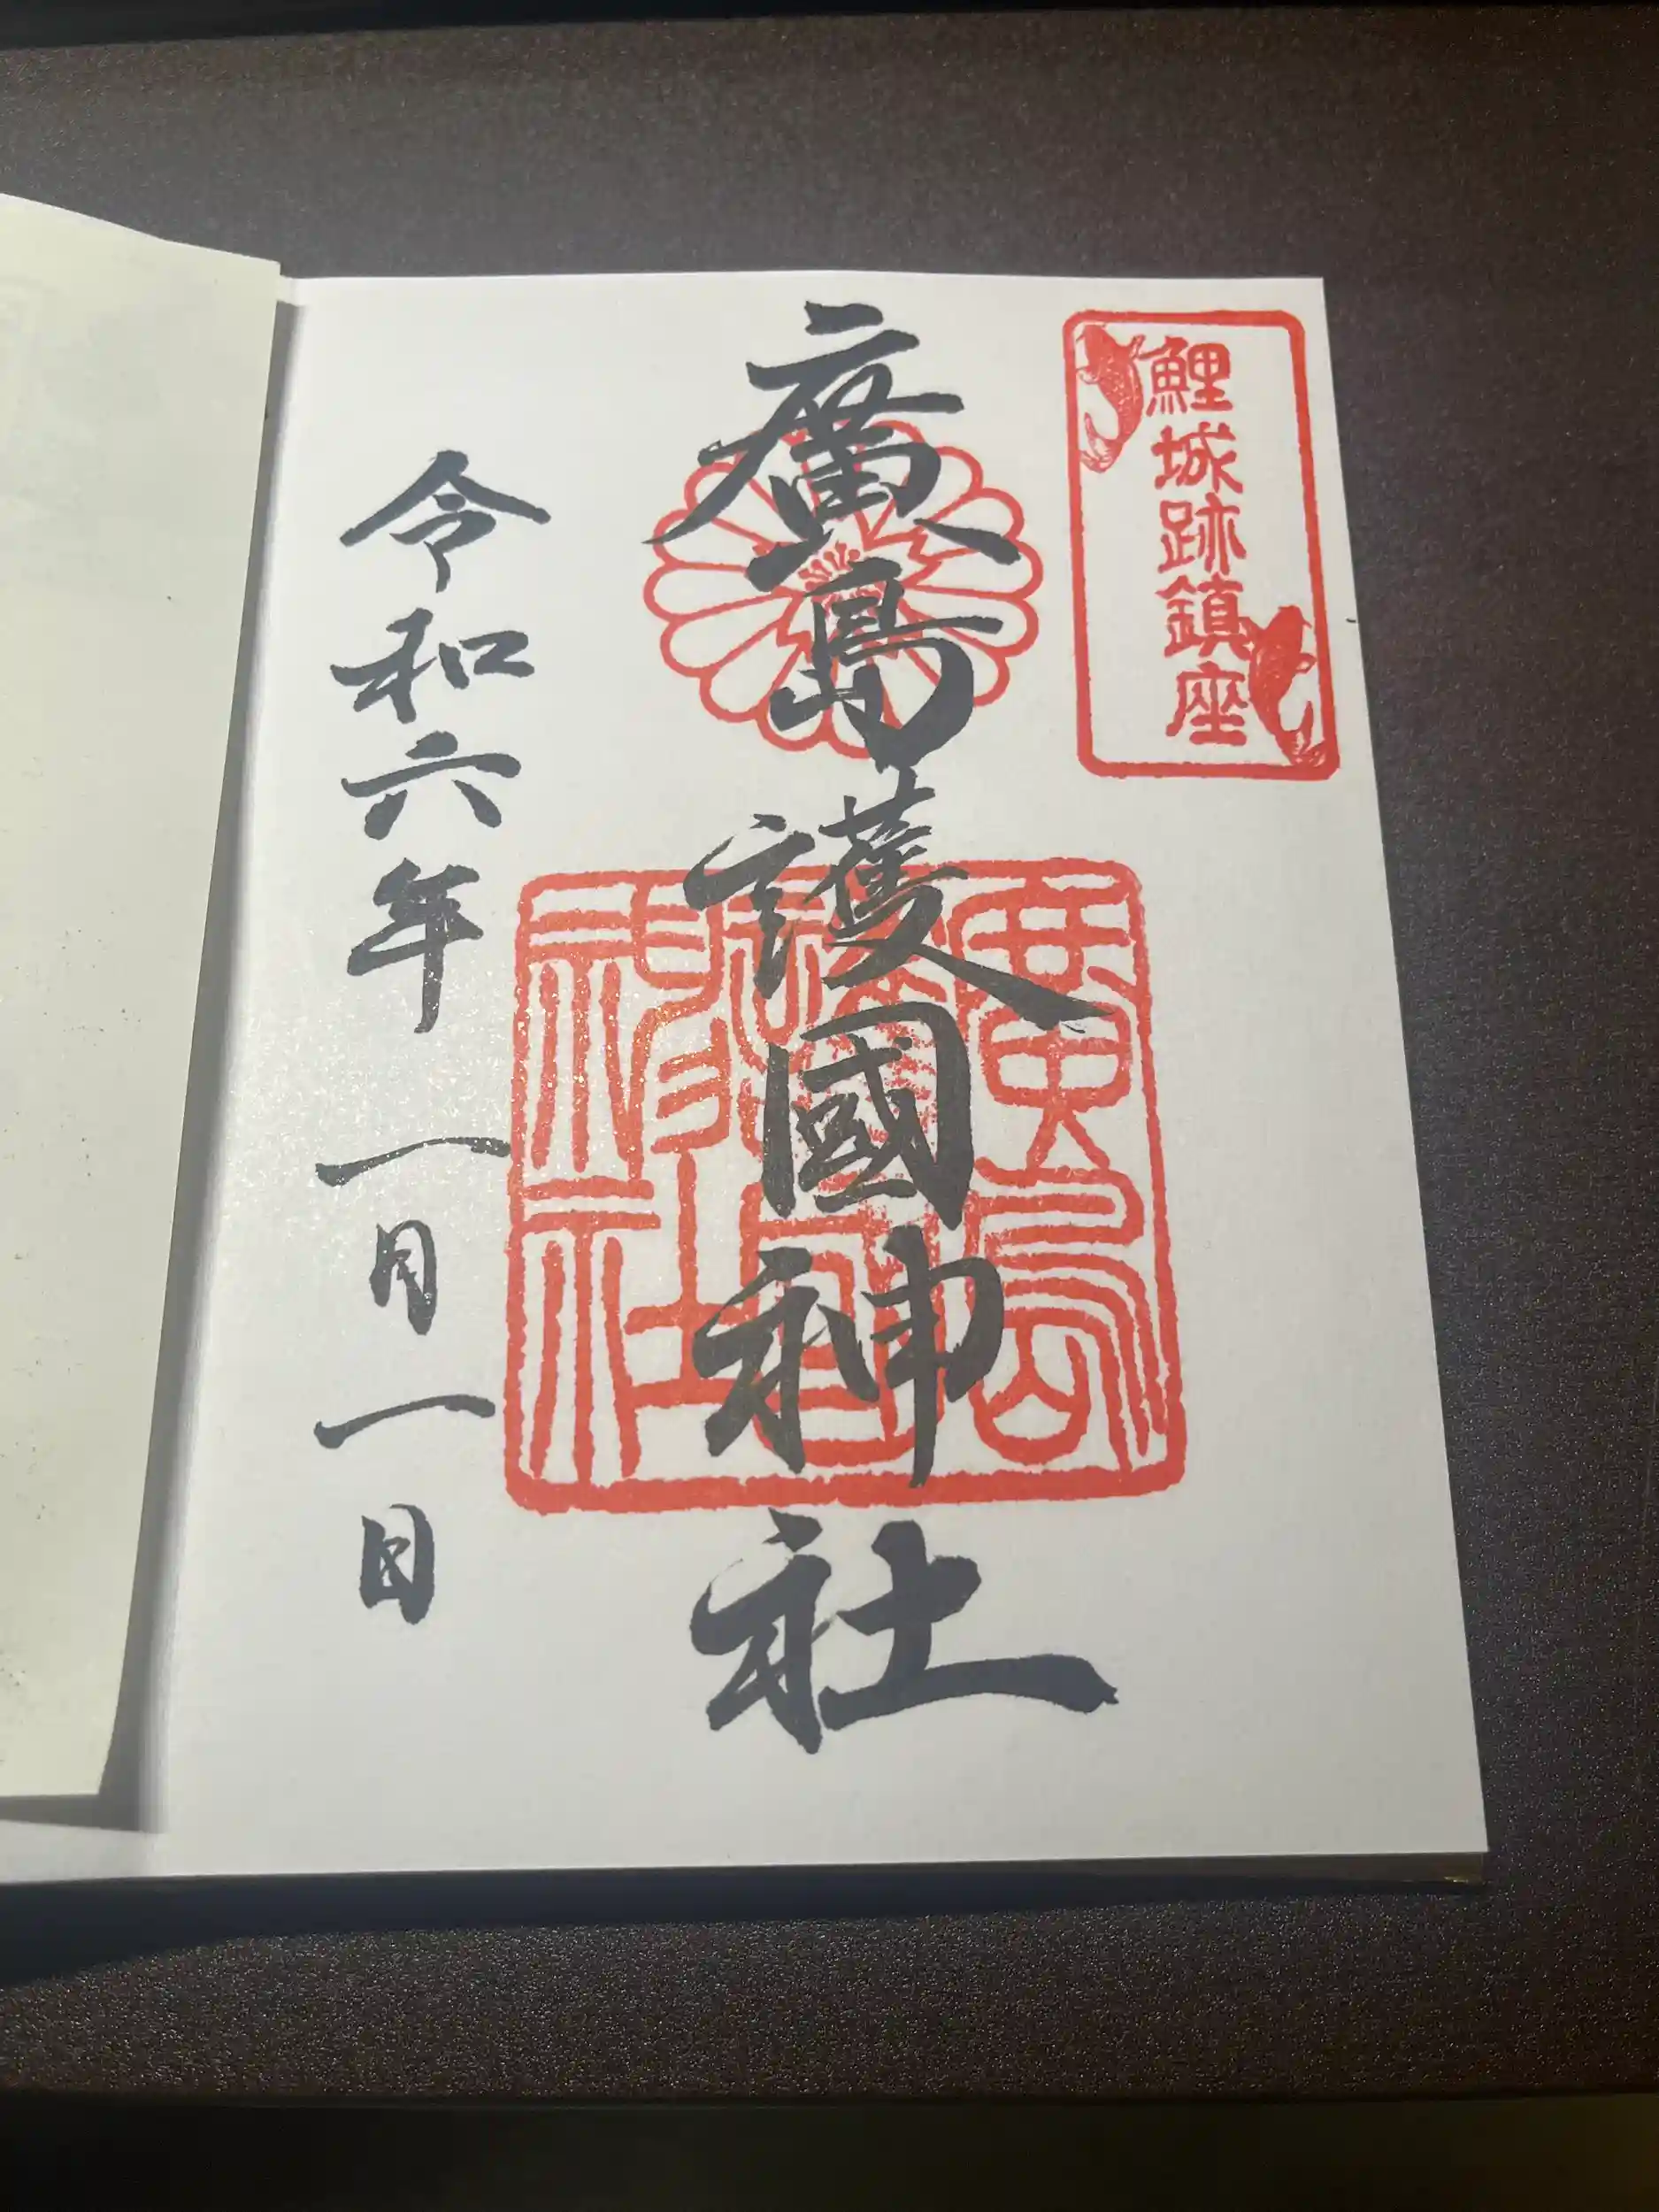 鯉城跡鎮座
廣島護國神社
令和六年一月一日